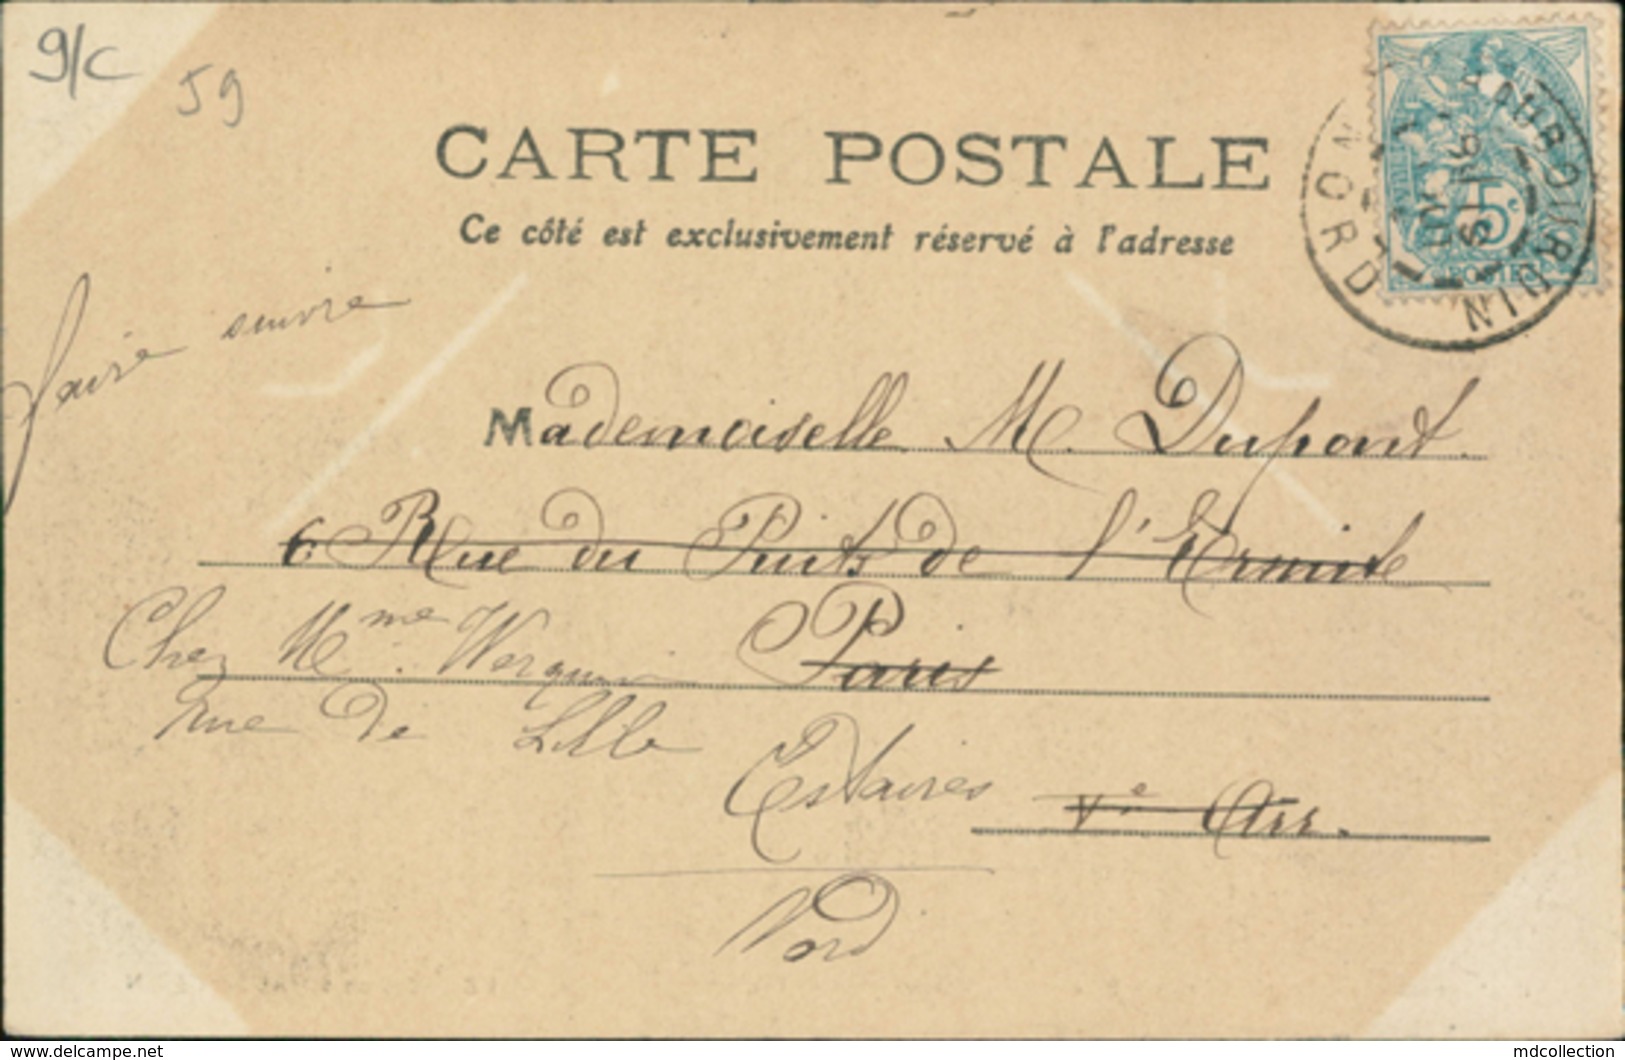 9/c
59
CARTE POSTALE
Ce côté est exclusivement réservé à l'adresse
faire suivre
Mademoiselle M. Dupont.
6 Rue du Puits de l'Ermite
Chez Mme Werquin Paris
rue de Lille
Estaires Ve Arr.
Nord
5c
POSTES
NORD
delcampe.net
mdcollection